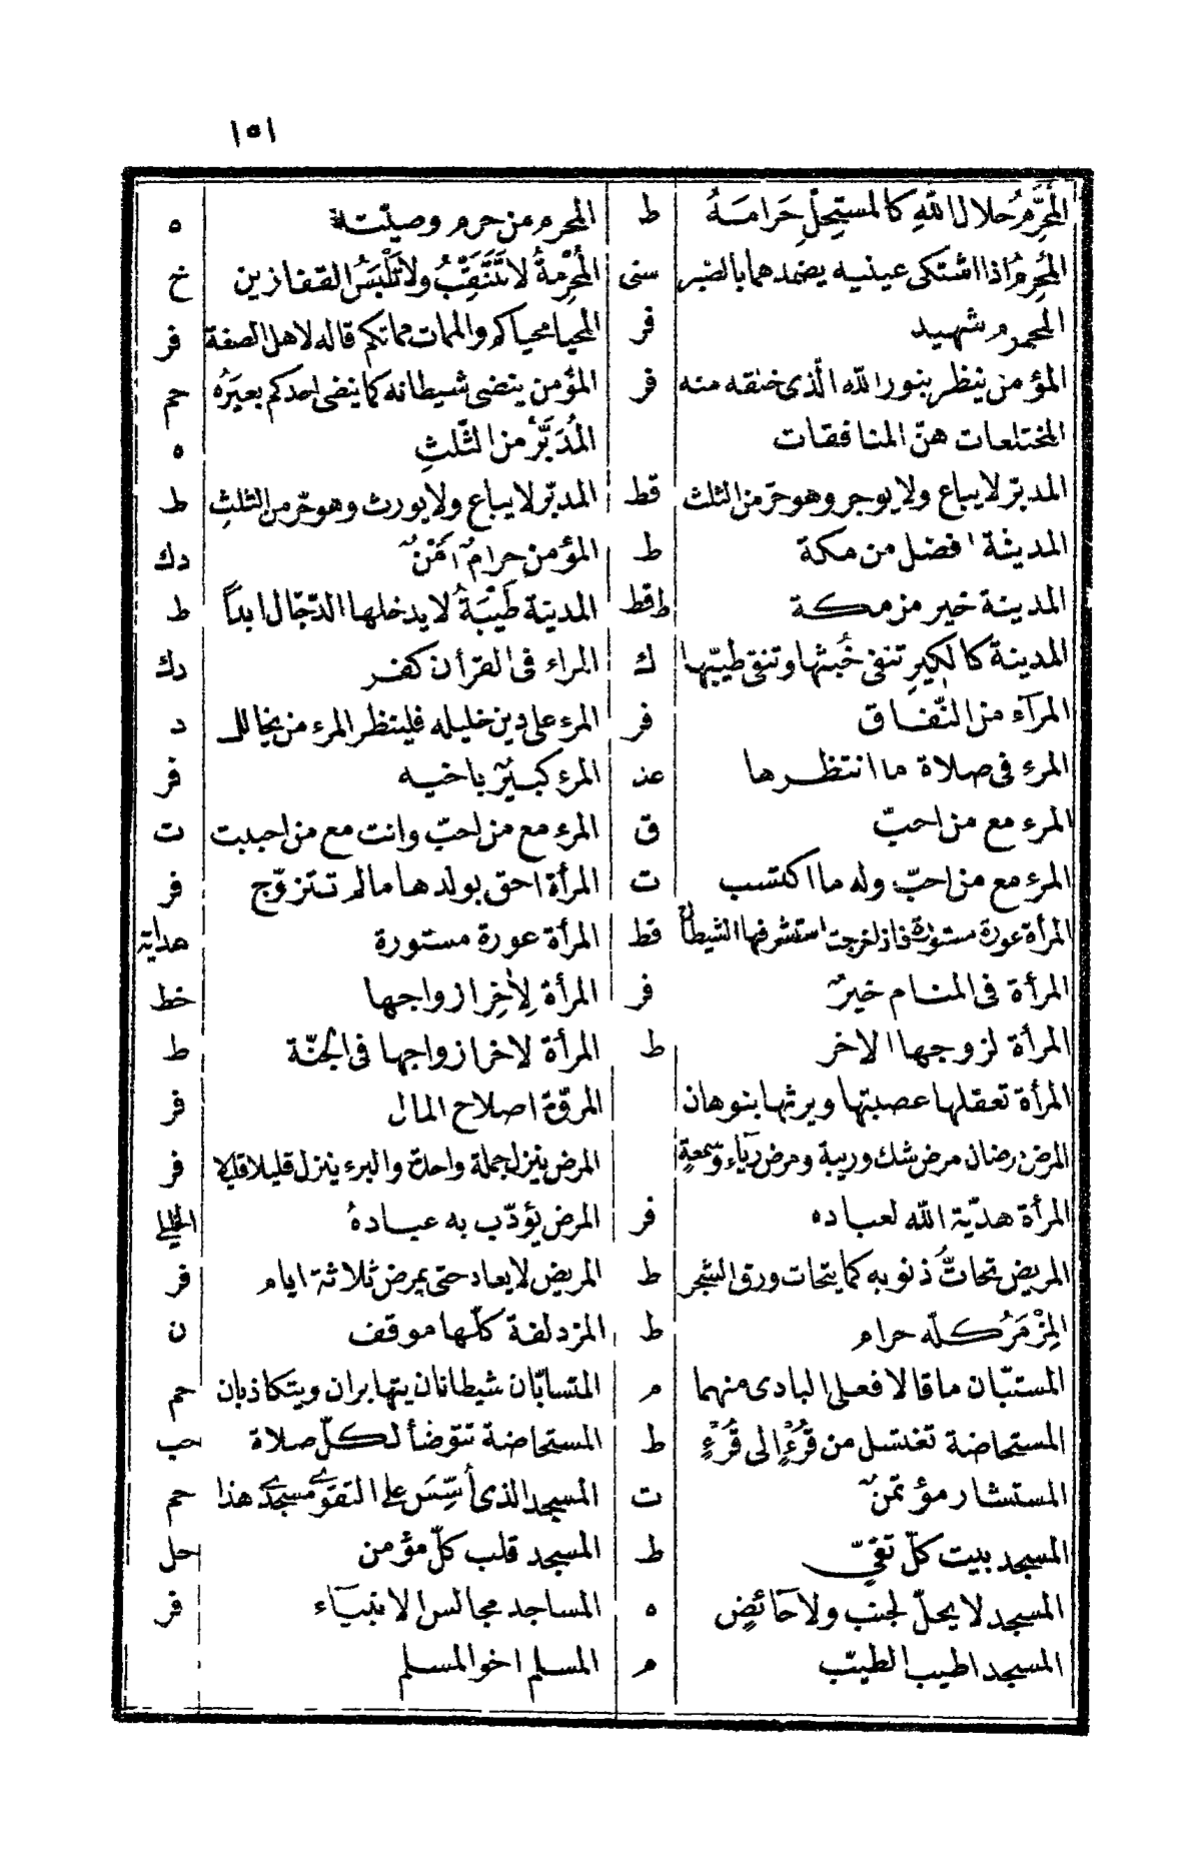 ١٥١
المُحَرِّمُ حلال اللّٰهِ كالمستحِلِّ حَرَامَهُ ط المحرم من حرم وصيّته ه
المُحرِمُ اذا اشتكى عينيه يضمدهما بالصَبر سنى المُحْرِمَةُ لا تَتَنَقَّبُ ولا تَلْبَسُ القفازين خ
المحموم شهيد فر المحيا محياكم والممات مماتكم قاله لاهل الصفة فر
المؤمن ينظر بنور اللّٰه الّذى خلقه منه فر المؤمن ينضى شيطانه كما ينضى احدكم بعيَرهُ حم
المختلعات هنّ المنافقات المُدَبَّرُ من الثّلثِ ه
المدبّر لا يباع ولا يوجر وهو حرّ من الثلث قط المدبّر لا يباع ولا يورث وهو حرّ من الثلثِ ط
المدينة افضل من مكة ط المؤمن حرامٌ اَمِنٌ دك
المدينة خير من مكة ط قط المدينة طَيْبَةُ لا يدخلها الدّجّال ابداً ط
المدينة كالكِيرِ تنفى خُبثها وتنقى طيّبها ك المراء فى القرأن كفر دك
المرآء من النّفاق فر المرء على دين خليله فلينظر المرء من يخالل د
المرء فى صلاة ما انتظرها عن المرء كبيرٌ باخيه فر
المرء مع من احبّ ق المرء مع من احبّ وانت مع من احببت ت
المرء مع من احبّ وله ما اكتسب ت المرأة احق بولدها مالم تتزوّج فر
المرأة عورة مستورة فاذا خرجت استشرفها الشيطان قط المرأة عورة مستورة هداية
المرأة فى المنام خيرٌ فر المرأة لِاٰخِرِ ازواجها خط
المرأة لزوجها الاخر ط المرأة لاخر ازواجها فى الجنّة ط
المرأة تعقلها عصبتها ويرثها بنوهان المروّة اصلاح المال فر
المرض رضان مرض شك وريبة ومرض ريآء وسمعةٍ المرض ينزل جملة واحدة والبرء ينزل قليلا قليلا فر
المرأة هديّة اللّٰه لعباده فر المرض يؤدّب به عبادهُ الخليلى
المريض تحاتُّ ذنوبه كما يتحات ورق الشجر ط المريض لا يعاد حتى يمرض ثلاثة ايام فر
المِزْمَرُ كلّه حرام ط المزدلفة كلّها موقف ن
المستبّان ما قالا فعلى البادى منهما م المتسابّان شيطانان يتهابران ويتكاذبان حم
المستحاضة تغتسل من قُرْءٍ الى قُرْءٍ ط المستحاضة تتوّضأ لكلّ صلاة حب
المستشار مؤتمنٌ ت المسجد الذى أُسِّسَ على التقوى مسجدى هذا حم
المسجد بيت كلّ تقىّ ط المسجد قلب كلّ مؤمن حل
المسجد لا يحلّ لجنب ولا حآئضٍ ه المساجد مجالس الانبيآء فر
المسجد اطيب الطيّب م المسلم اخو المسلم